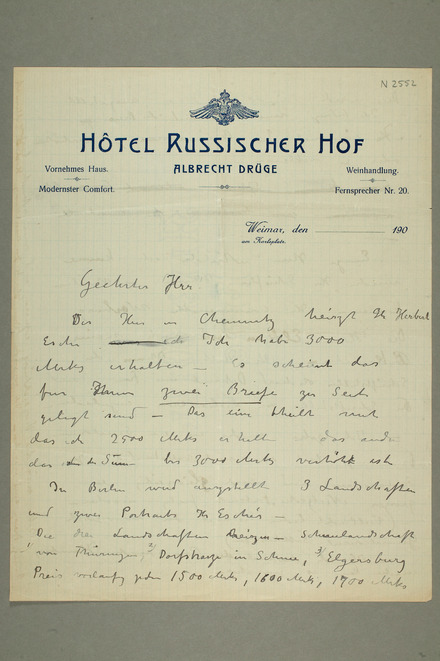 N 2552
HÔTEL RUSSISCHER HOF
ALBRECHT DRÜGE
Vornehmes Haus.
Modernster Comfort.
Weinhandlung.
Fernsprecher Nr. 20.
Weimar, den 190
am Karlsplatz.
Geehrter Herr
Der Herr in Chemnitz heisst Hr Herbert
Esche Ich habe 3000
Marks erhalten – Es scheint das
zwei Briefe zu
gelegt sind – Das eine theilt mit
das ich 2500 Marks erhalte das andre
das die bis 3000 Marks ist
In Berlin wird ausgestellt 3 Landschaften
und zwei Portraits Hr Esche's –
Die drei Landschaften – Schneelandschaft
von Thüringen, 2/ Dorfstrasse in Schnee, 3/ Elgersburg
Preis vorläufig jeden 1500 Marks, 1600 Marks, 1700 Marks